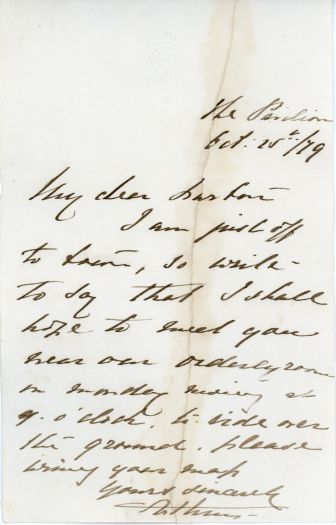 The Pavilion
Oct. 25th/79
My dear Barton
I am just off
to town, so write
to say that I shall
hope to meet you
near our orderly room
on monday morning at
9. o'clock. to ride over
the ground. please
bring your map
Yours sincerely
Arthur